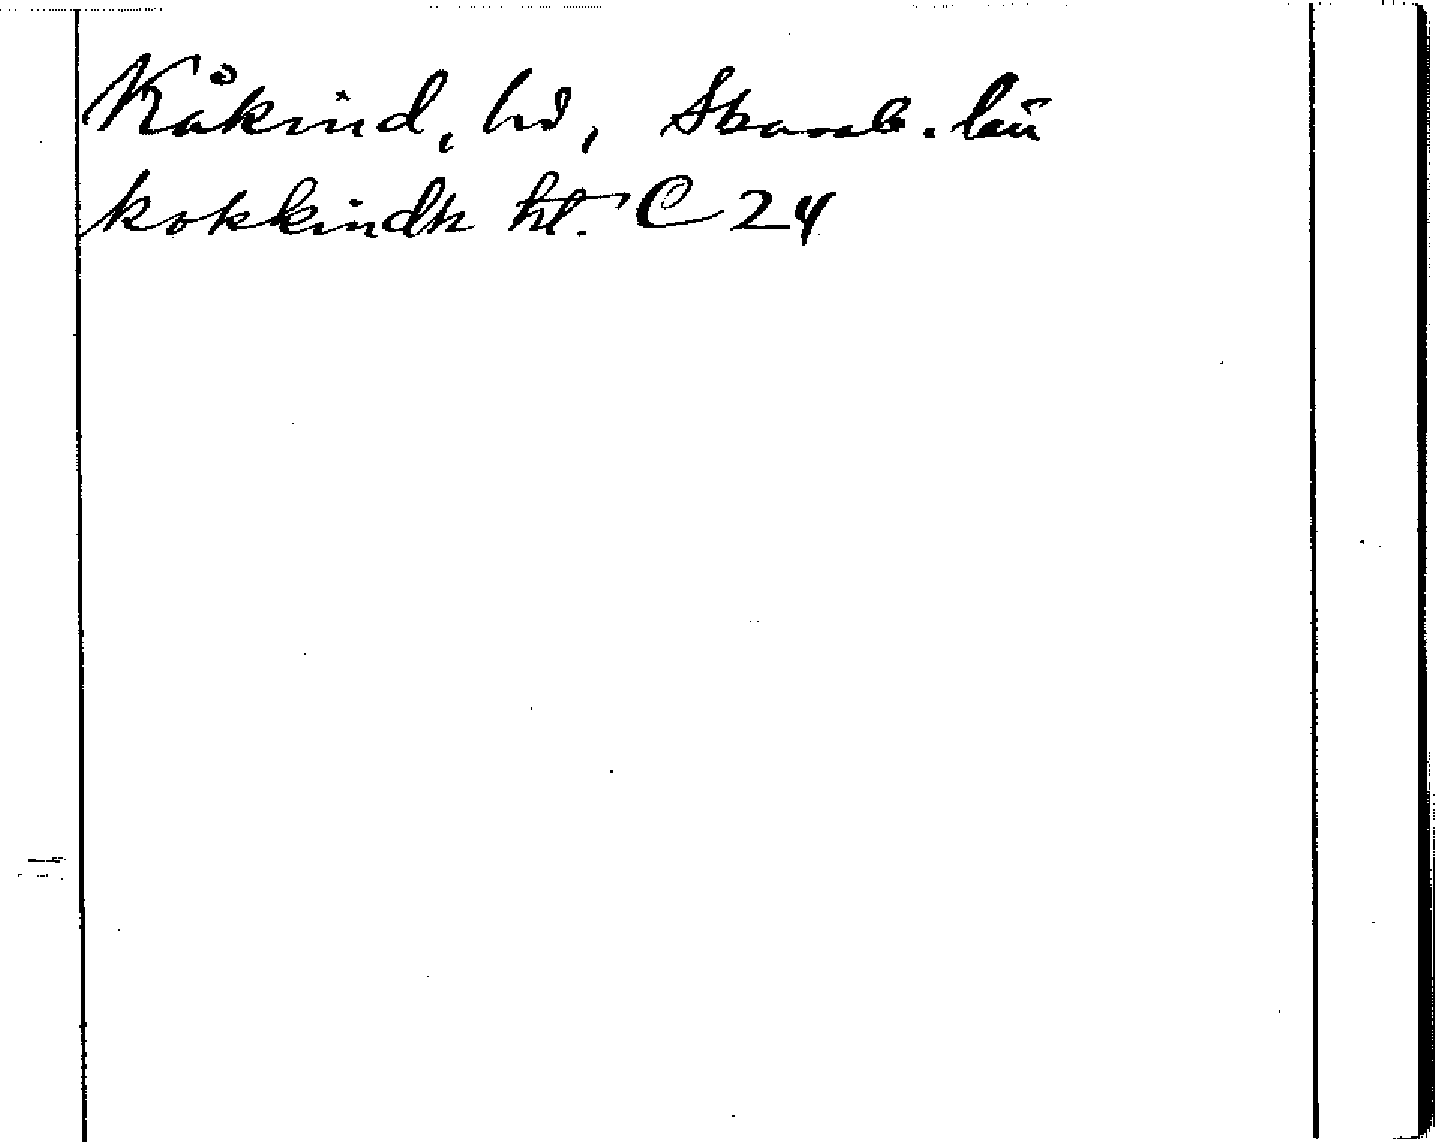 Kåkind, hd, Skarab. län
kokkindh ht. C 24